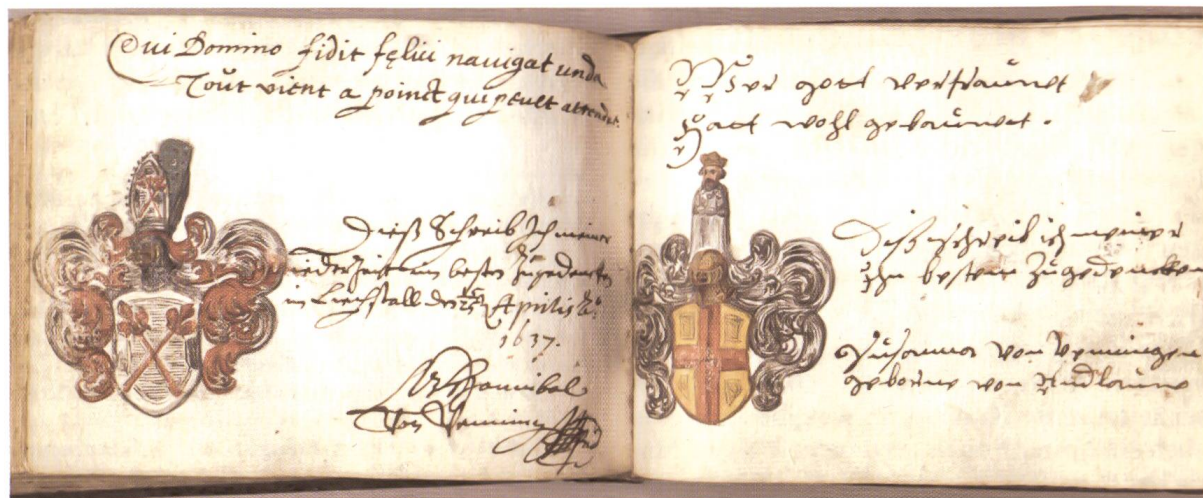 Qui Domino fidit fęlici navigat unda
Toŭt vient a poinct qui peult attendre.
Dieß Schreib Ich meiner
Jederzeit im besten Zugedencken
in Liechstall den 15/25 Aprilis Aō.
1637.
Hannibal
Von Venningen
Wer gott vertrauwet
Hatt wohl gebauwet.
Diß schreib ich meiner
Ihn bestem Zugedencken
Susanna von Venningen
geborne von Andlauw